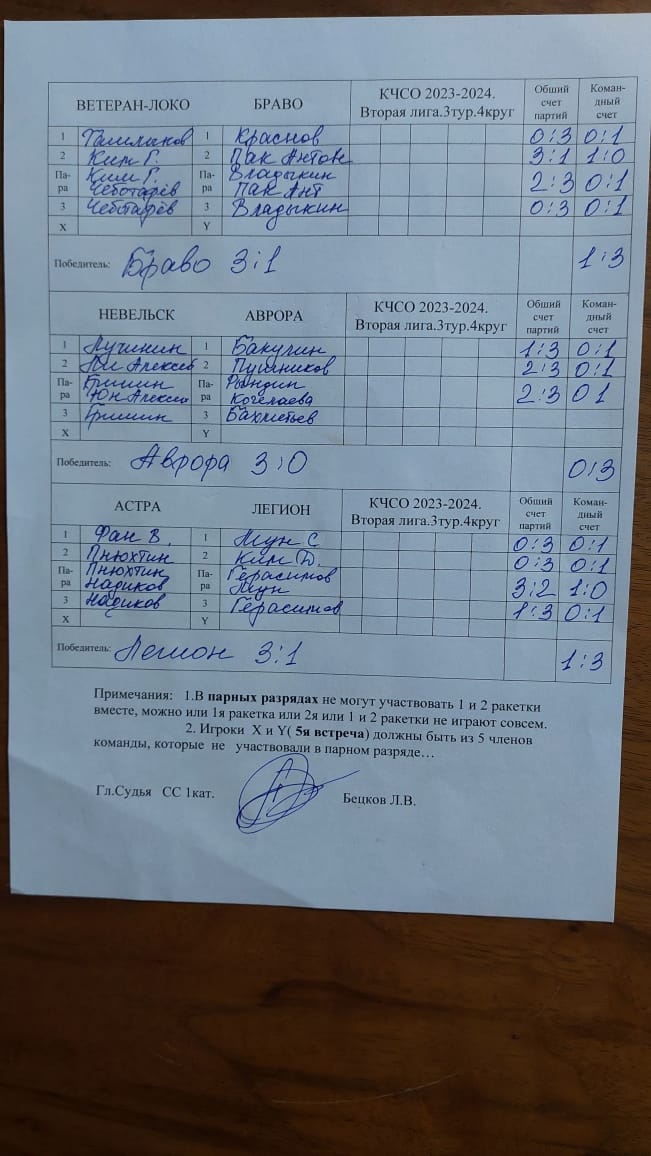 ВЕТЕРАН-ЛОКО БРАВО КЧСО 2023-2024. Вторая лига.3тур.4круг Общий счет партий Коман-дный счет
1 1 Краснов 0:3 0:1
2 Ким Г. 2 Пак Антон 3:1 1:0
Па-ра Ким Г. Чеботарёв Па-ра Владыкин Пак Ант 2:3 0:1
3 Чеботарёв 3 Владыкин 0:3 0:1
X Y
Победитель: Браво 3:1 1:3
НЕВЕЛЬСК АВРОРА КЧСО 2023-2024. Вторая лига.3тур.4круг Общий счет партий Коман-дный счет
1 Лучинин 1 Бакулин 1:3 0:1
2 Алексей 2 Пушников 2:3 0:1
Па-ра Гришин Юн Алексей Па-ра Рындин 2:3 0 1
3 Гришин 3
X Y
Победитель: Аврора 3:0 0:3
АСТРА ЛЕГИОН КЧСО 2023-2024. Вторая лига.3тур.4круг Общий счет партий Коман-дный счет
1 Фан В. 1 Мун С. 0:3 0:1
2 Пнюхтин 2 Ким Д. 0:3 0:1
Па-ра Пнюхтин Надиков Па-ра Герасимов Мун 3:2 1:0
3 Надиков 3 Герасимов 1:3 0:1
X Y
Победитель: Легион 3:1 1:3
Примечания: 1.В парных разрядах не могут участвовать 1 и 2 ракетки
вместе, можно или 1я ракетка или 2я или 1 и 2 ракетки не играют совсем.
2. Игроки X и Y( 5я встреча) должны быть из 5 членов
команды, которые не участвовали в парном разряде…
Гл.Судья СС 1кат. Бецков Л.В.